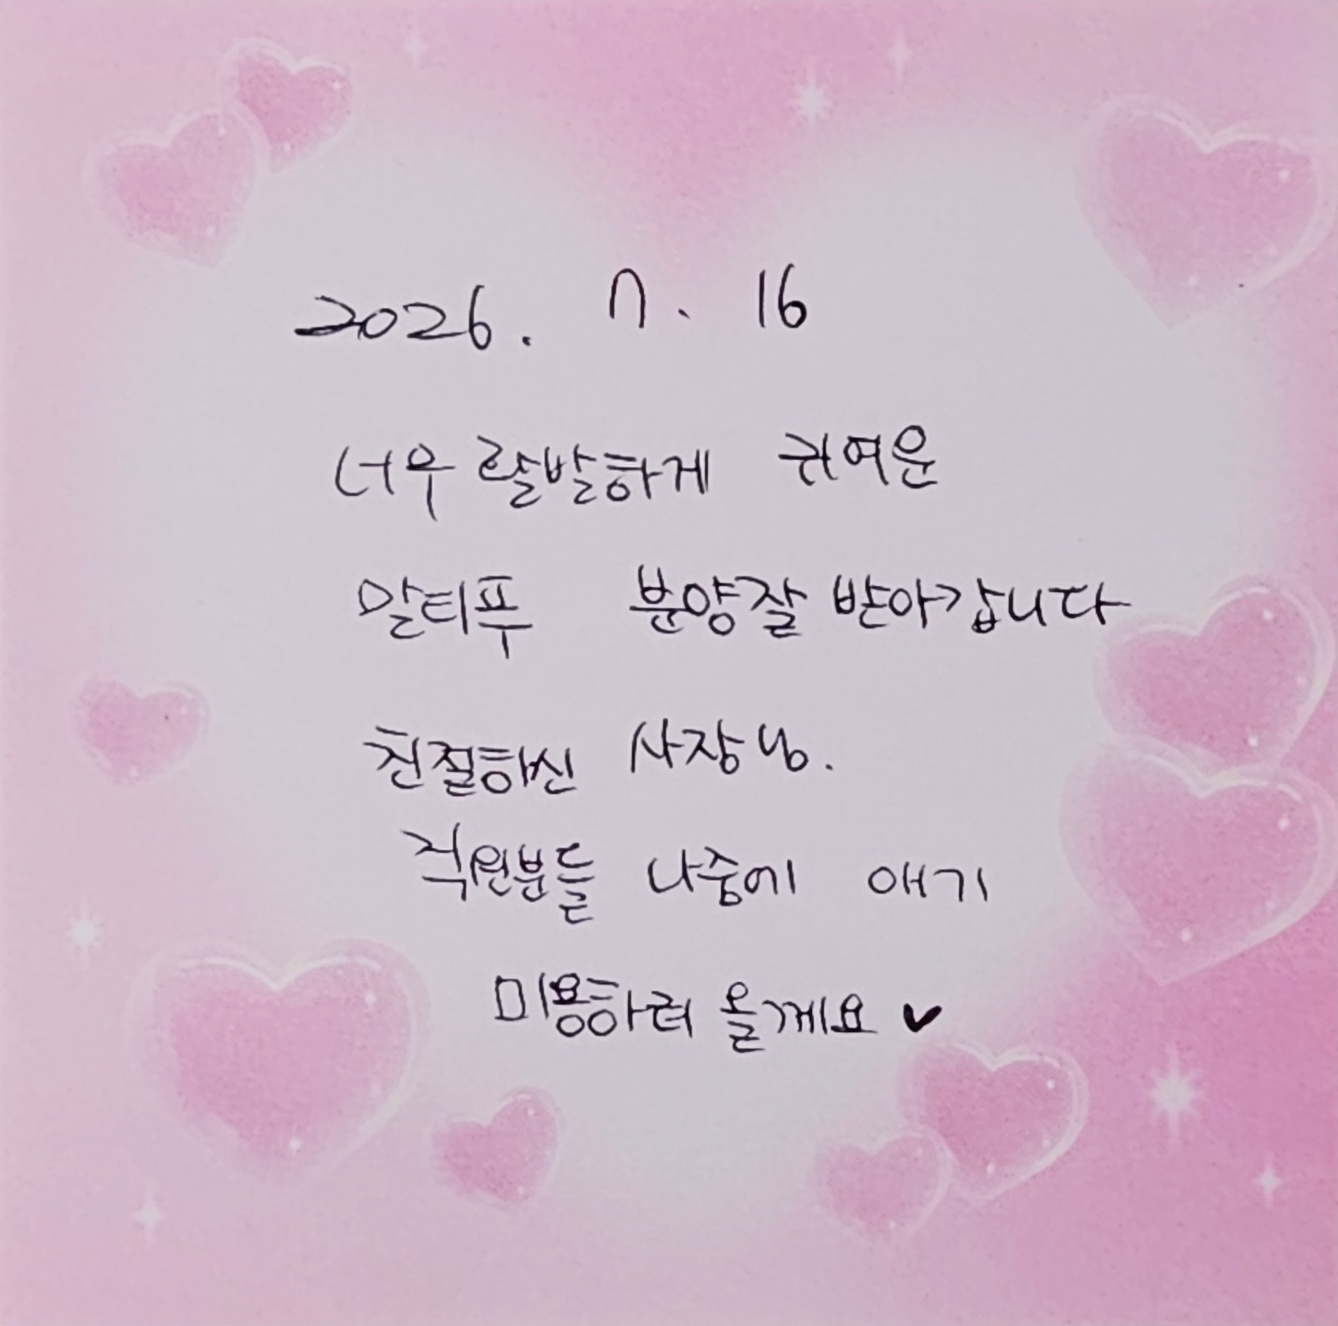 2026. 7. 16
너무 랄발하게 귀여운
말티푸 분양잘 받아갑니다
친절하신 사장님.
직원분들 나중에 애기
미용하러 올게요 ♥